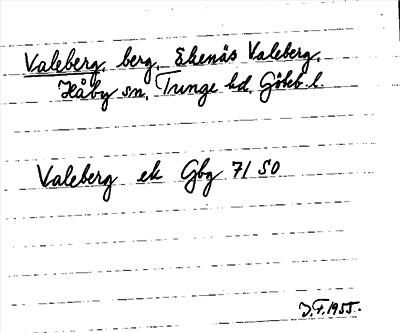 Valeberg, berg, Ekenäs Valeberg,
Håby sn, Tunge hd. Göteb. l.
Valeberg ek Gbg 71 SO
J.F. 1955.